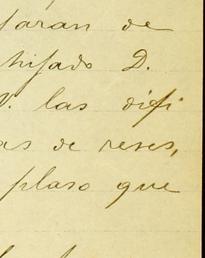 saran de
hijado D.
V. las difi
as de reses,
plaso que